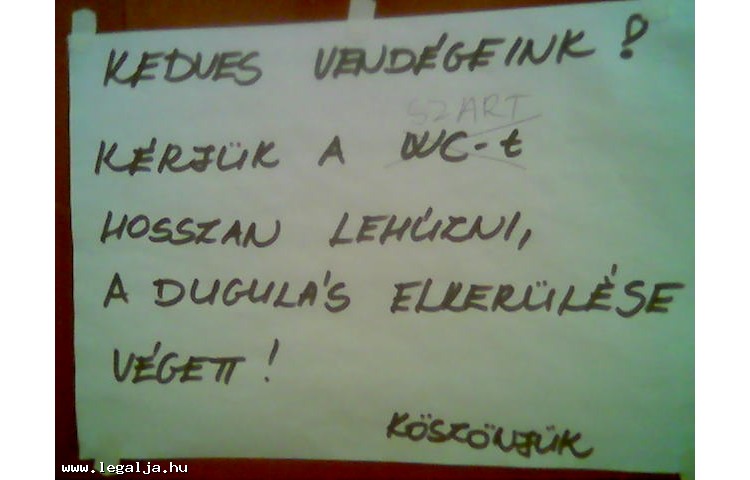 KEDVES VENDÉGEINK!
SZART
KÉRJÜK A WC-t
HOSSZAN LEHÚZNI,
A DUGULÁS ELKERÜLÉSE
VÉGETT!
KÖSZÖNJÜK
www.legalja.hu